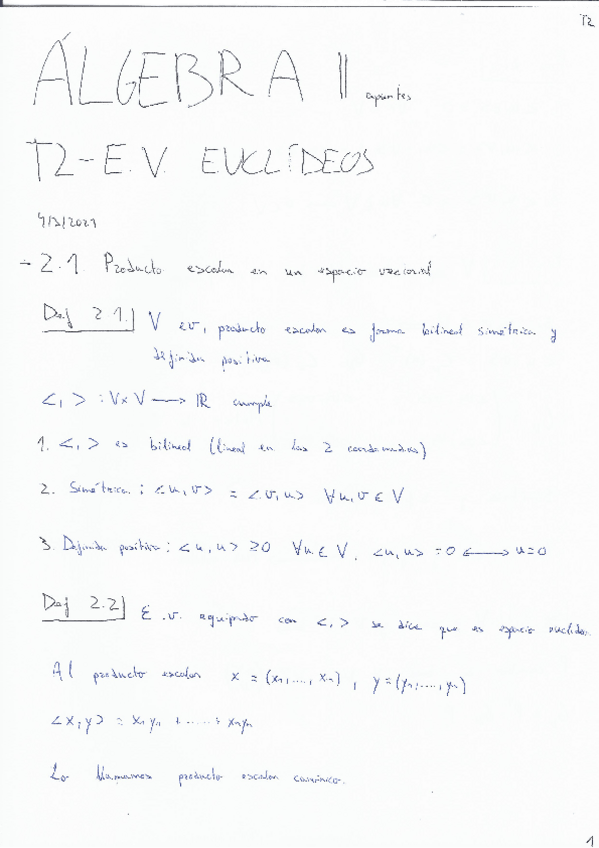 T2
ÁLGEBRA II apuntes
T2 - E.V. EUCLÍDEOS
4/3/2021
→ 2.1. Producto escalar en un espacio vectorial
Def 2.1. V ev, producto escalar es forma bilineal simétrica y
definida positiva
<,> : V×V ⟶ ℝ cumple
1. <,> es bilineal (lineal en las 2 coordenadas)
2. Simétrica: <u,v> = <v,u> ∀u,v ∈ V
3. Definida positiva: <u,u> ≥0 ∀u ∈ V, <u,u> =0 ⟷ u=0
Def 2.2 E.v. equipado con <,> se dice que es espacio euclídeo.
Al producto escalar x = (x₁,...,xₙ), y = (y₁,...,yₙ)
<x,y> = x₁y₁ + ..... + xₙyₙ
Lo llamamos producto escalar canónico.
1